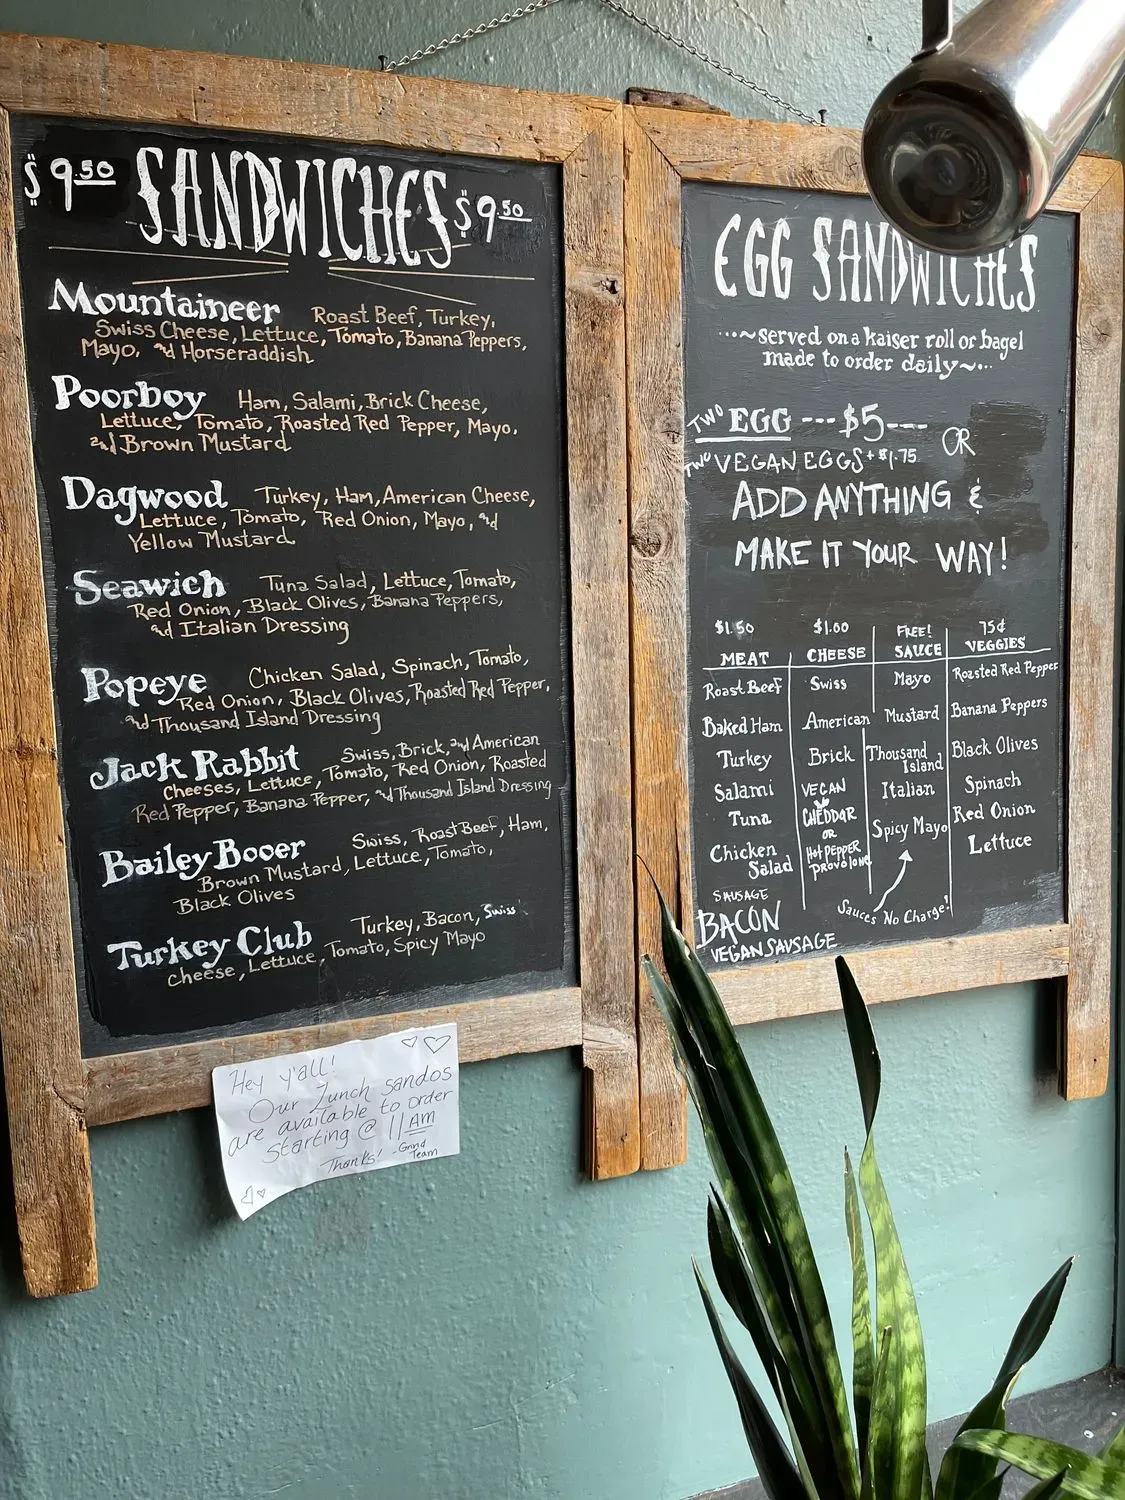 $9.50 SANDWICHES $9.50
Mountaineer Roast Beef, Turkey,
Swiss Cheese, Lettuce, Tomato, Banana Peppers,
Mayo, and Horseraddish
Poorboy Ham, Salami, Brick Cheese,
Lettuce, Tomato, Roasted Red Pepper, Mayo,
and Brown Mustard
Dagwood Turkey, Ham, American Cheese,
Lettuce, Tomato, Red Onion, Mayo, and
Yellow Mustard
Seawich Tuna Salad, Lettuce, Tomato,
Red Onion, Black Olives, Banana Peppers,
and Italian Dressing
Popeye Chicken Salad, Spinach, Tomato,
Red Onion, Black Olives, Roasted Red Pepper,
and Thousand Island Dressing
Jack Rabbit Swiss, Brick, and American
Cheeses, Lettuce, Tomato, Red Onion, Roasted
Red Pepper, Banana Pepper, and Thousand Island Dressing
Bailey Booer Swiss, Roast Beef, Ham,
Brown Mustard, Lettuce, Tomato,
Black Olives
Turkey Club Turkey, Bacon, Swiss
Cheese, Lettuce, Tomato, Spicy Mayo
Hey y'all!
Our Lunch sandos
are available to order
starting @ 11AM
Thanks! -Grind
Team
EGG SANDWICHES
...~served on a kaiser roll or bagel
made to order daily~...
TWO EGG ---$5--- OR
TWO VEGAN EGGS +$1.75
ADD ANYTHING &
MAKE IT YOUR WAY!
$1.50
MEAT
Roast Beef
Baked Ham
Turkey
Salami
Tuna
Chicken
Salad
SAUSAGE
BACON
VEGAN SAUSAGE
$1.00
CHEESE
Swiss
American
Brick
VEGAN
CHEDDAR
OR
HOT PEPPER
PROVOLONE
FREE!
SAUCE
Mayo
Mustard
Thousand
Island
Italian
Spicy Mayo
Sauces No Charge!
75¢
VEGGIES
Roasted Red Pepper
Banana Peppers
Black Olives
Spinach
Red Onion
Lettuce